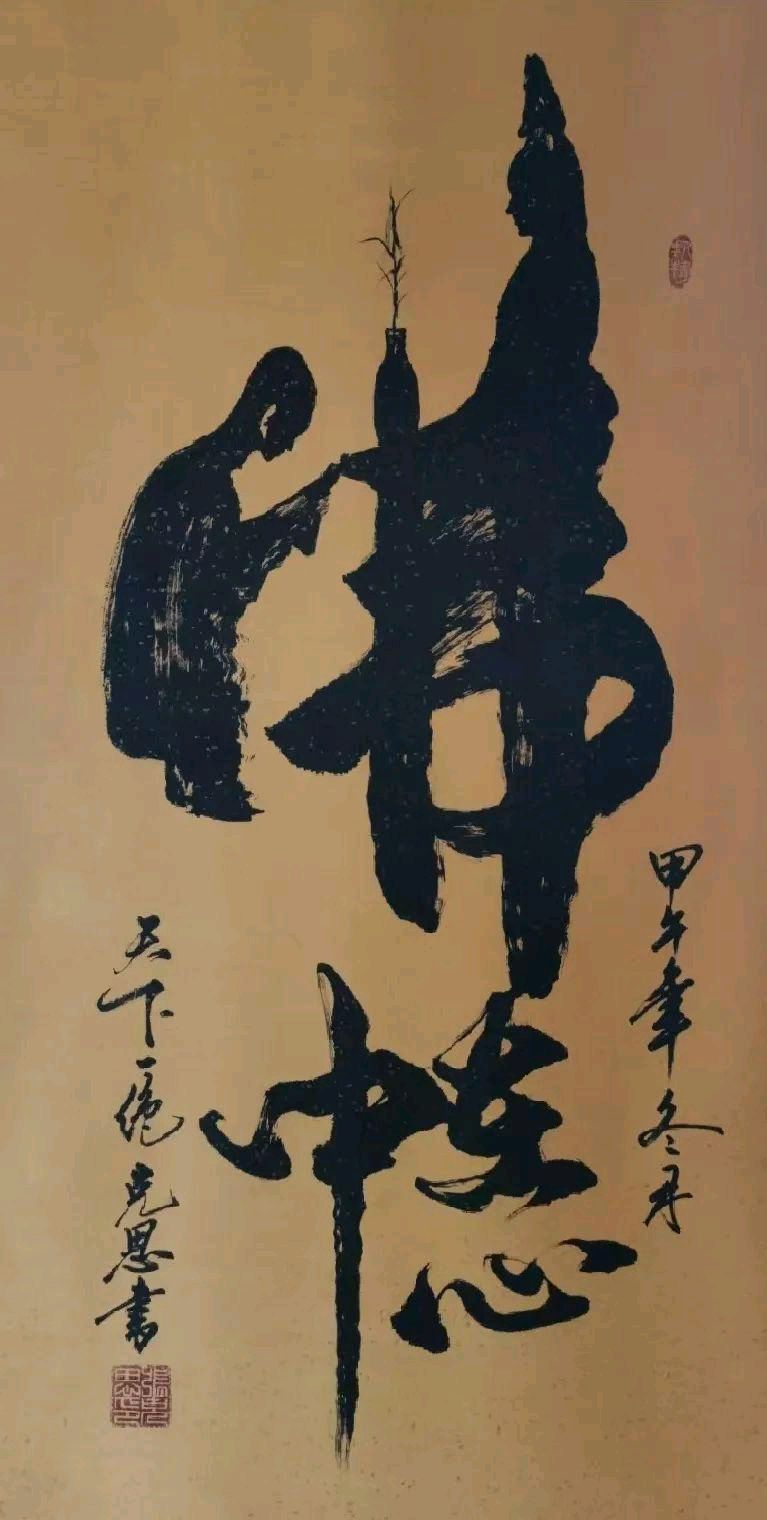 佛
在心
中
甲午年冬月
天下一绝克恩书